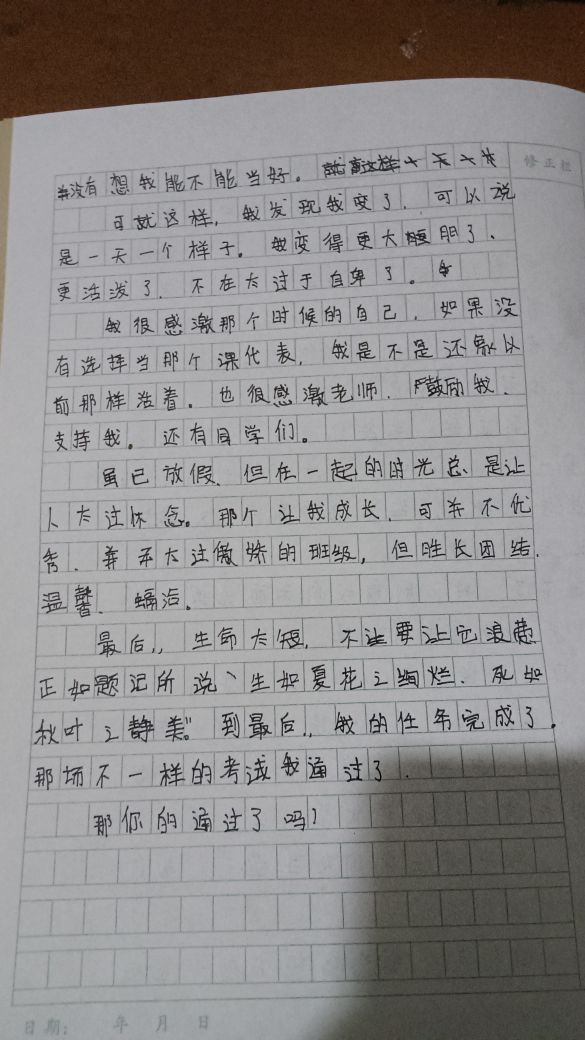 并没有想我能不能当好。就真这样一天一天
修正栏
可就这样，我发现我变了，可以说
是一天一个样子。我变得更大胆了、
更活泼了，不在太过于自卑了。
我很感激那个时候的自己，如果没
有选择当那个课代表，我是不是还象以
前那样活着。也很感激老师，鼓励我、
支持我。还有同学们。
虽已放假，但在一起的时光总是让
人太过怀念。那个让我成长，可并不优
秀，并不太过傲娇的班级，但胜长团结、
温馨、活。
最后，生命太短，不要让它浪费
正如题记所说"生如夏花之绚烂，死如
秋叶之静美。"到最后，我的任务完成了。
那场不一样的考试我通过了．
那你的通过了吗？
日期： 年 月 日